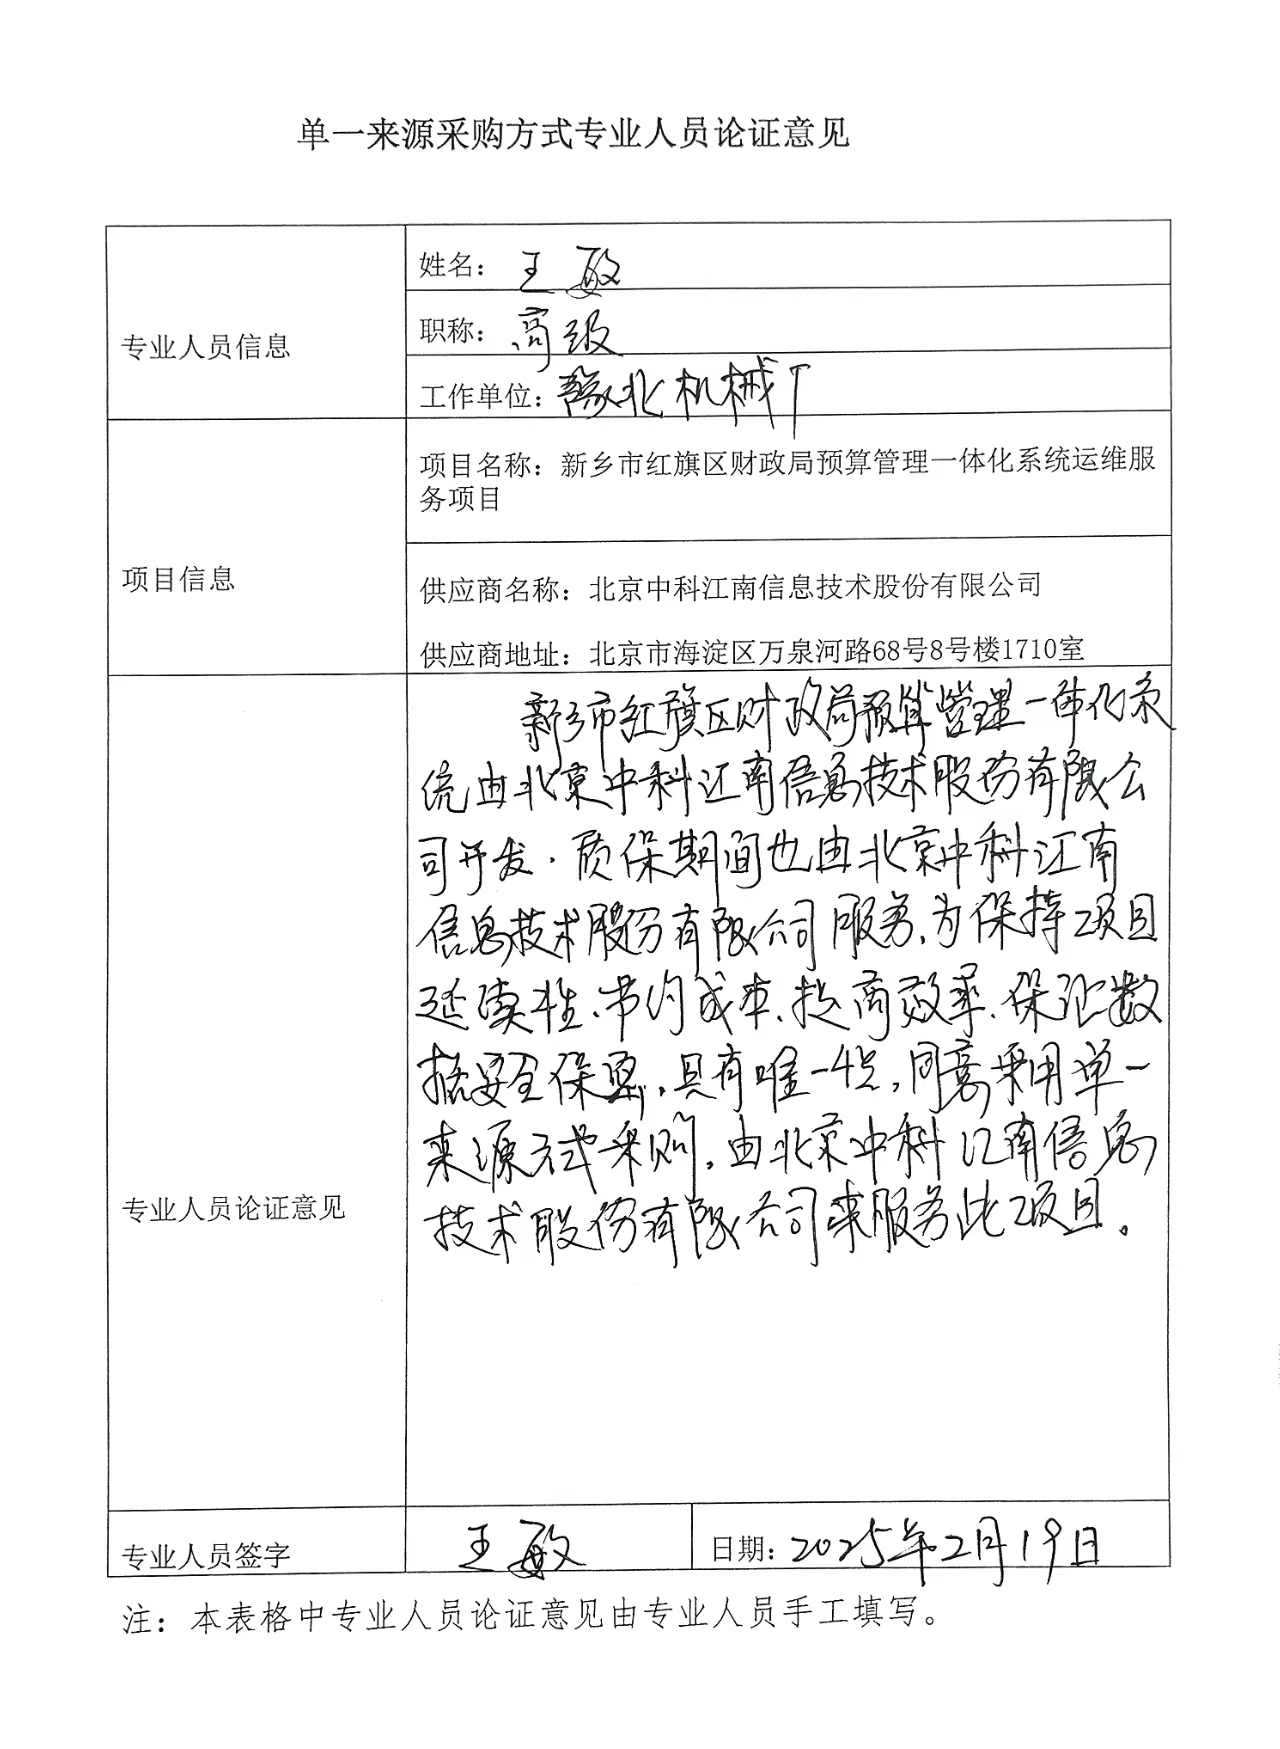 单一来源采购方式专业人员论证意见
专业人员信息
姓名：王敏
职称：高级
工作单位：豫北机械厂
项目信息
项目名称：新乡市红旗区财政局预算管理一体化系统运维服
务项目
供应商名称：北京中科江南信息技术股份有限公司
供应商地址：北京市海淀区万泉河路68号8号楼1710室
专业人员论证意见
新乡市红旗区财政局预算管理一体化系
统由北京中科江南信息技术股份有限公
司开发，质保期间也由北京中科江南
信息技术股份有限公司服务、为保持项目
延续性、节约成本、提高效率、保证数
据安全保密，具有唯一性，同意采用单一
来源方式采购，由北京中科江南信息
技术股份有限公司来服务此项目。
专业人员签字
王敏
日期：2025年2月19日
注：本表格中专业人员论证意见由专业人员手工填写。